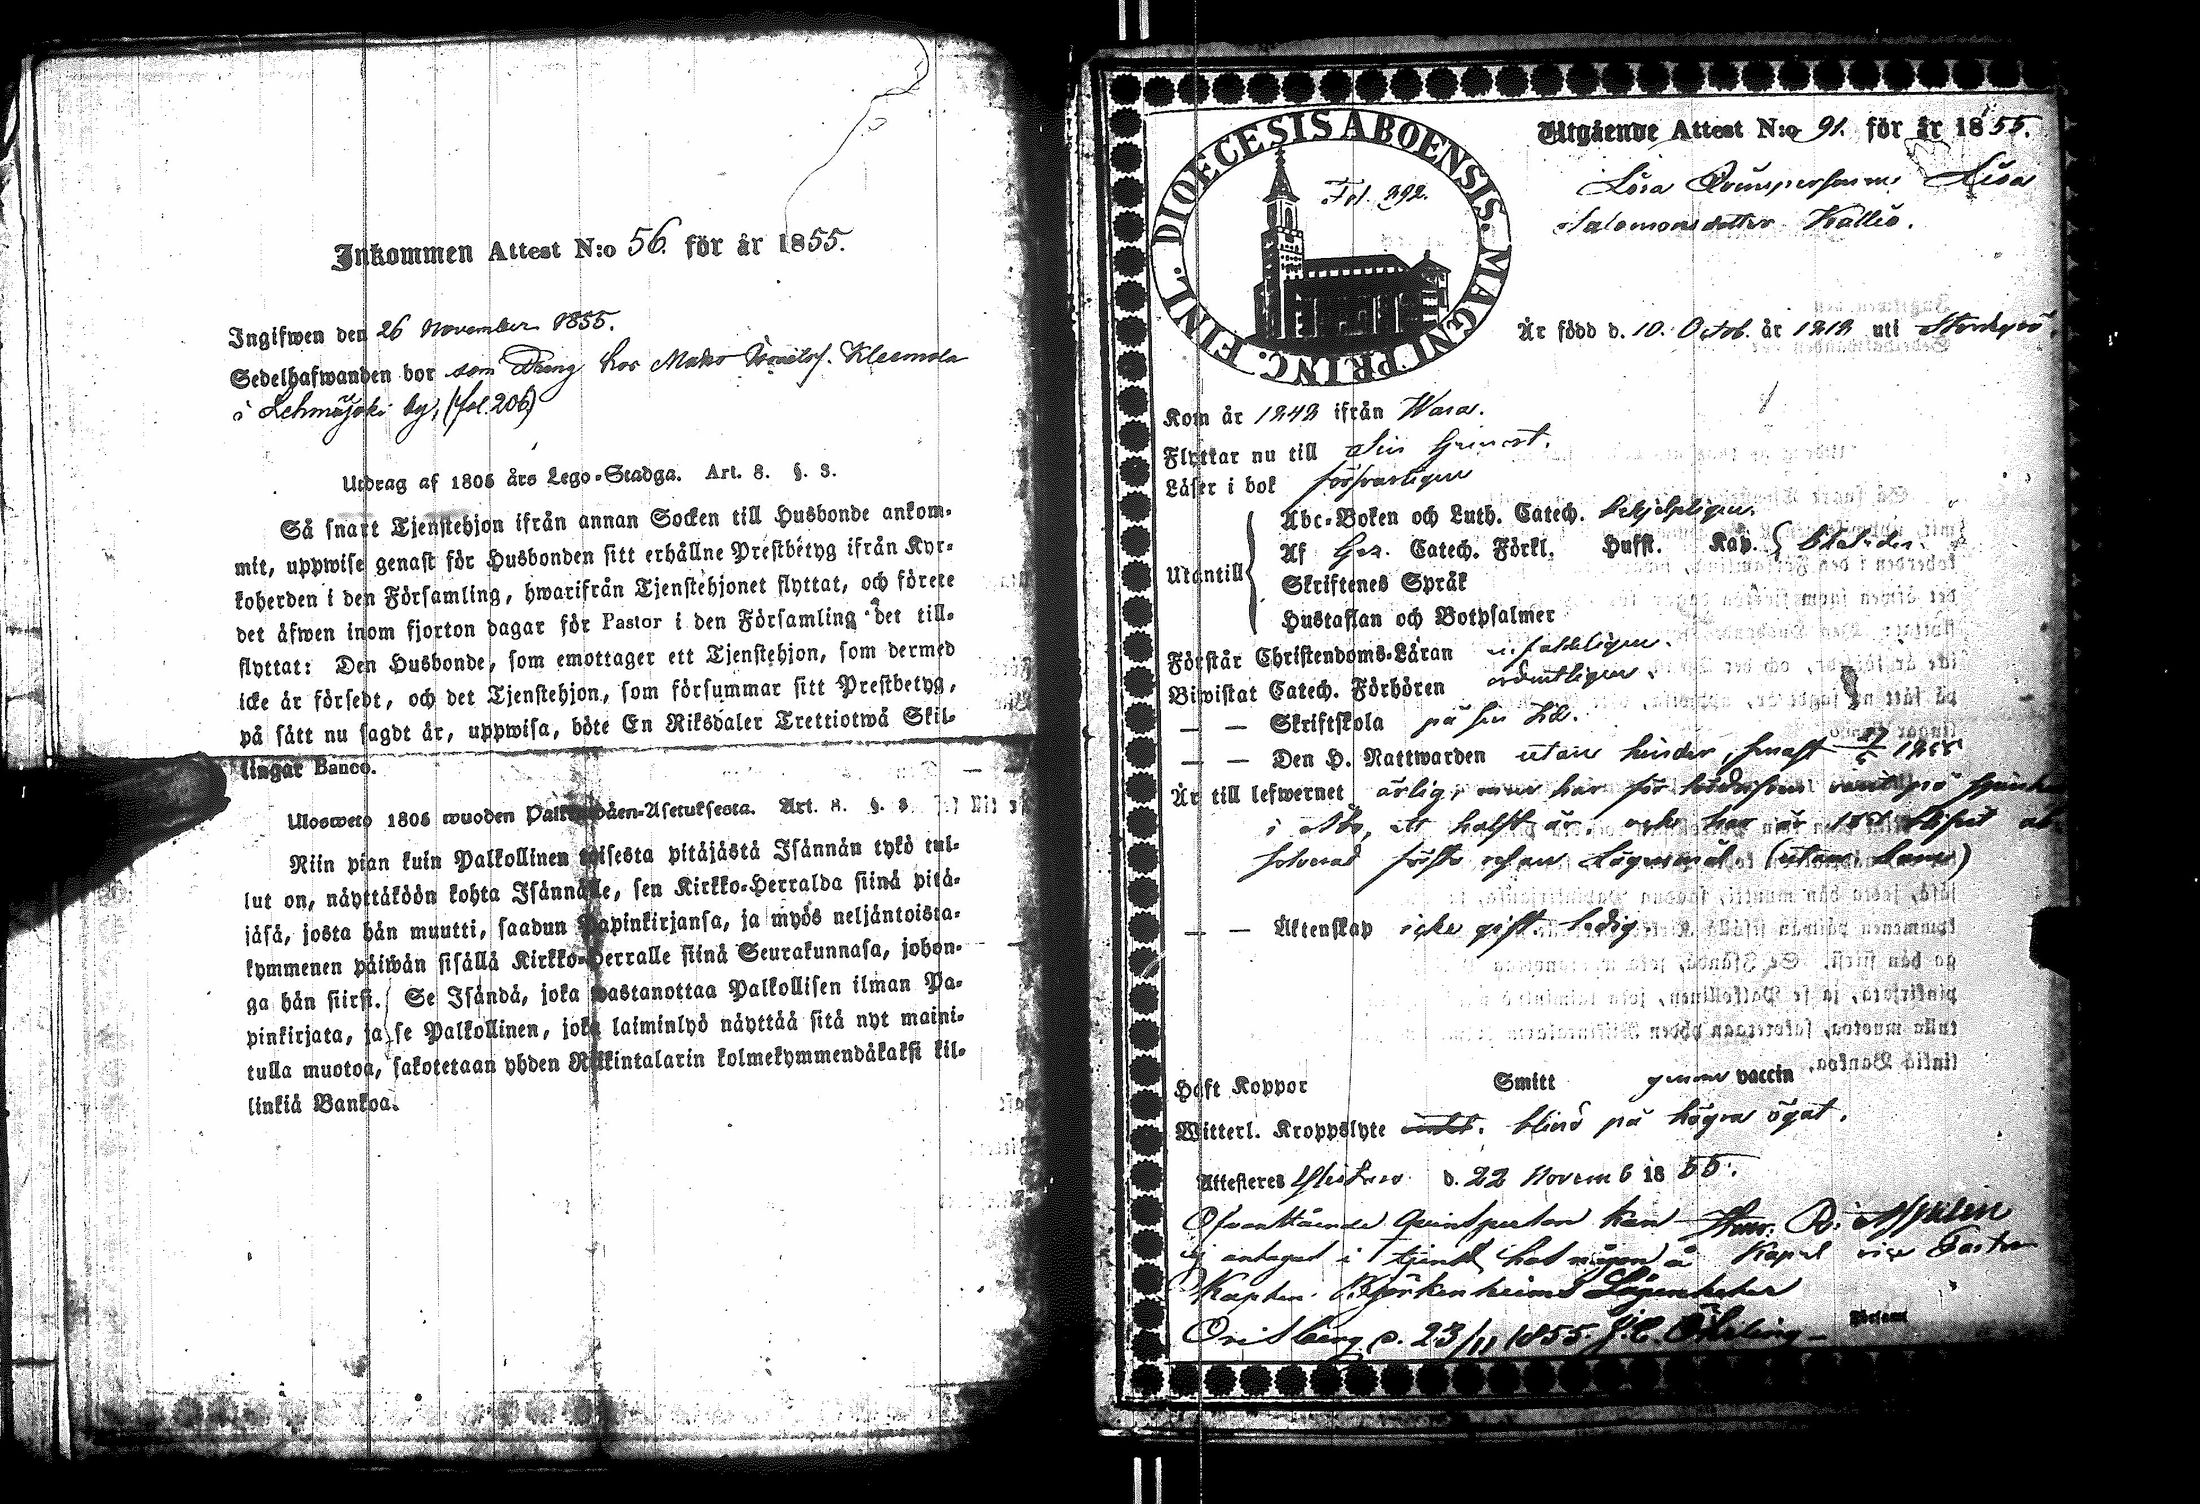 Inkommen Attest N:o 56. för år 1855.
Ingifwen den 26 November 1855.
Sedelhafwanden bor som Dräng hos Matts Klemola
i Lehmäjoki by, (fol. 206)
Utdrag af 1805 års Lego-Stadga. Art. 8. §. 3.
Så snart Tjenstehjon ifrån annan Socken till Husbonde ankom-
mit, uppwise genast för Husbonden sitt erhållne Prestbetyg ifrån Kyr-
koherden i den Församling, hwarifrån Tjenstehjonet flyttat, och förete
det äfwen inom fjorton dagar för Pastor i den Församling det till-
flyttat: Den Husbonde, som emottager ett Tjenstehjon, som dermed
icke är försedt, och det Tjenstehjon, som försummar sitt Prestbetyg,
på sätt nu sagdt är, uppwisa, böte En Riksdaler Trettiotwå Skil-
lingar Banco.
Ulosweto 1805 wuoden Palkowäen-Asetuksesta. Art. 8. §. 3.
Niin pian kuin Palkollinen toisesta pitäjästä Isännän tykö tul-
lut on, näyttäköön kohta Isännälle, sen Kirkko-Herralda siinä pitä-
jäsä, josta hän muutti, saadun Papinkirjansa, ja myös neljäntoista-
kymmenen päiwän sisällä Kirkko-Herralle siinä Seurakunnasa, johon-
ga hän siirst. Se Isändä, joka wastanottaa Palkollisen ilman Pa-
pinkirjata, ja se Palkollinen, joka laiminlyö näyttää sitä nyt maini-
tulla muotoa, sakotetaan yhden Riikintalarin kolmekymmendäkaksi kil-
linkiä Bankoa.
DIOECESIS ABOENSIS. MAGNI PRINC. FINL.
Fol. 392.
Utgående Attest N:o 91. för år 1855.
Lösa Qvinspersonen Lisa
Salomonsdotter Kallio.
Är född d. 10. Octob. år 1818 uti Storkyro.
Kom år 1848 ifrån Wasa.
Flyttar nu till sin
Läser i bok försvarligen
Utantill
Abc-Boken och Luth. Catech. behjelpligen.
Af Catech. Förkl. Hufst. Kap.
Skriftenes Språk
Hustaflan och Botpsalmer
Förstår Christendoms-Läran
Biwistat Catech. Förhören ordentligen.
— — Skriftskola på sin tid.
— — Den H. Nattwarden utan hinder, senast 1855
Är till lefwernet ärlig, men har för
i Åbo, ett halft år, och har år 1851
första resan Lägersmål (utan barn)
— — Äktenskap icke gift ledig.
Haft Koppor Smitt genom vaccin
Witterl. Kroppslyte intet. blind på högra ögat.
Attesteres d. 22 Novemb 1855.
Ofvanstående Qvinsperson kan
ej antagas i tjenst hos någon å Kapel. vice Pastor
Kapten Björkenheims Lägenheter
Orisberg d. 23/11 1855.